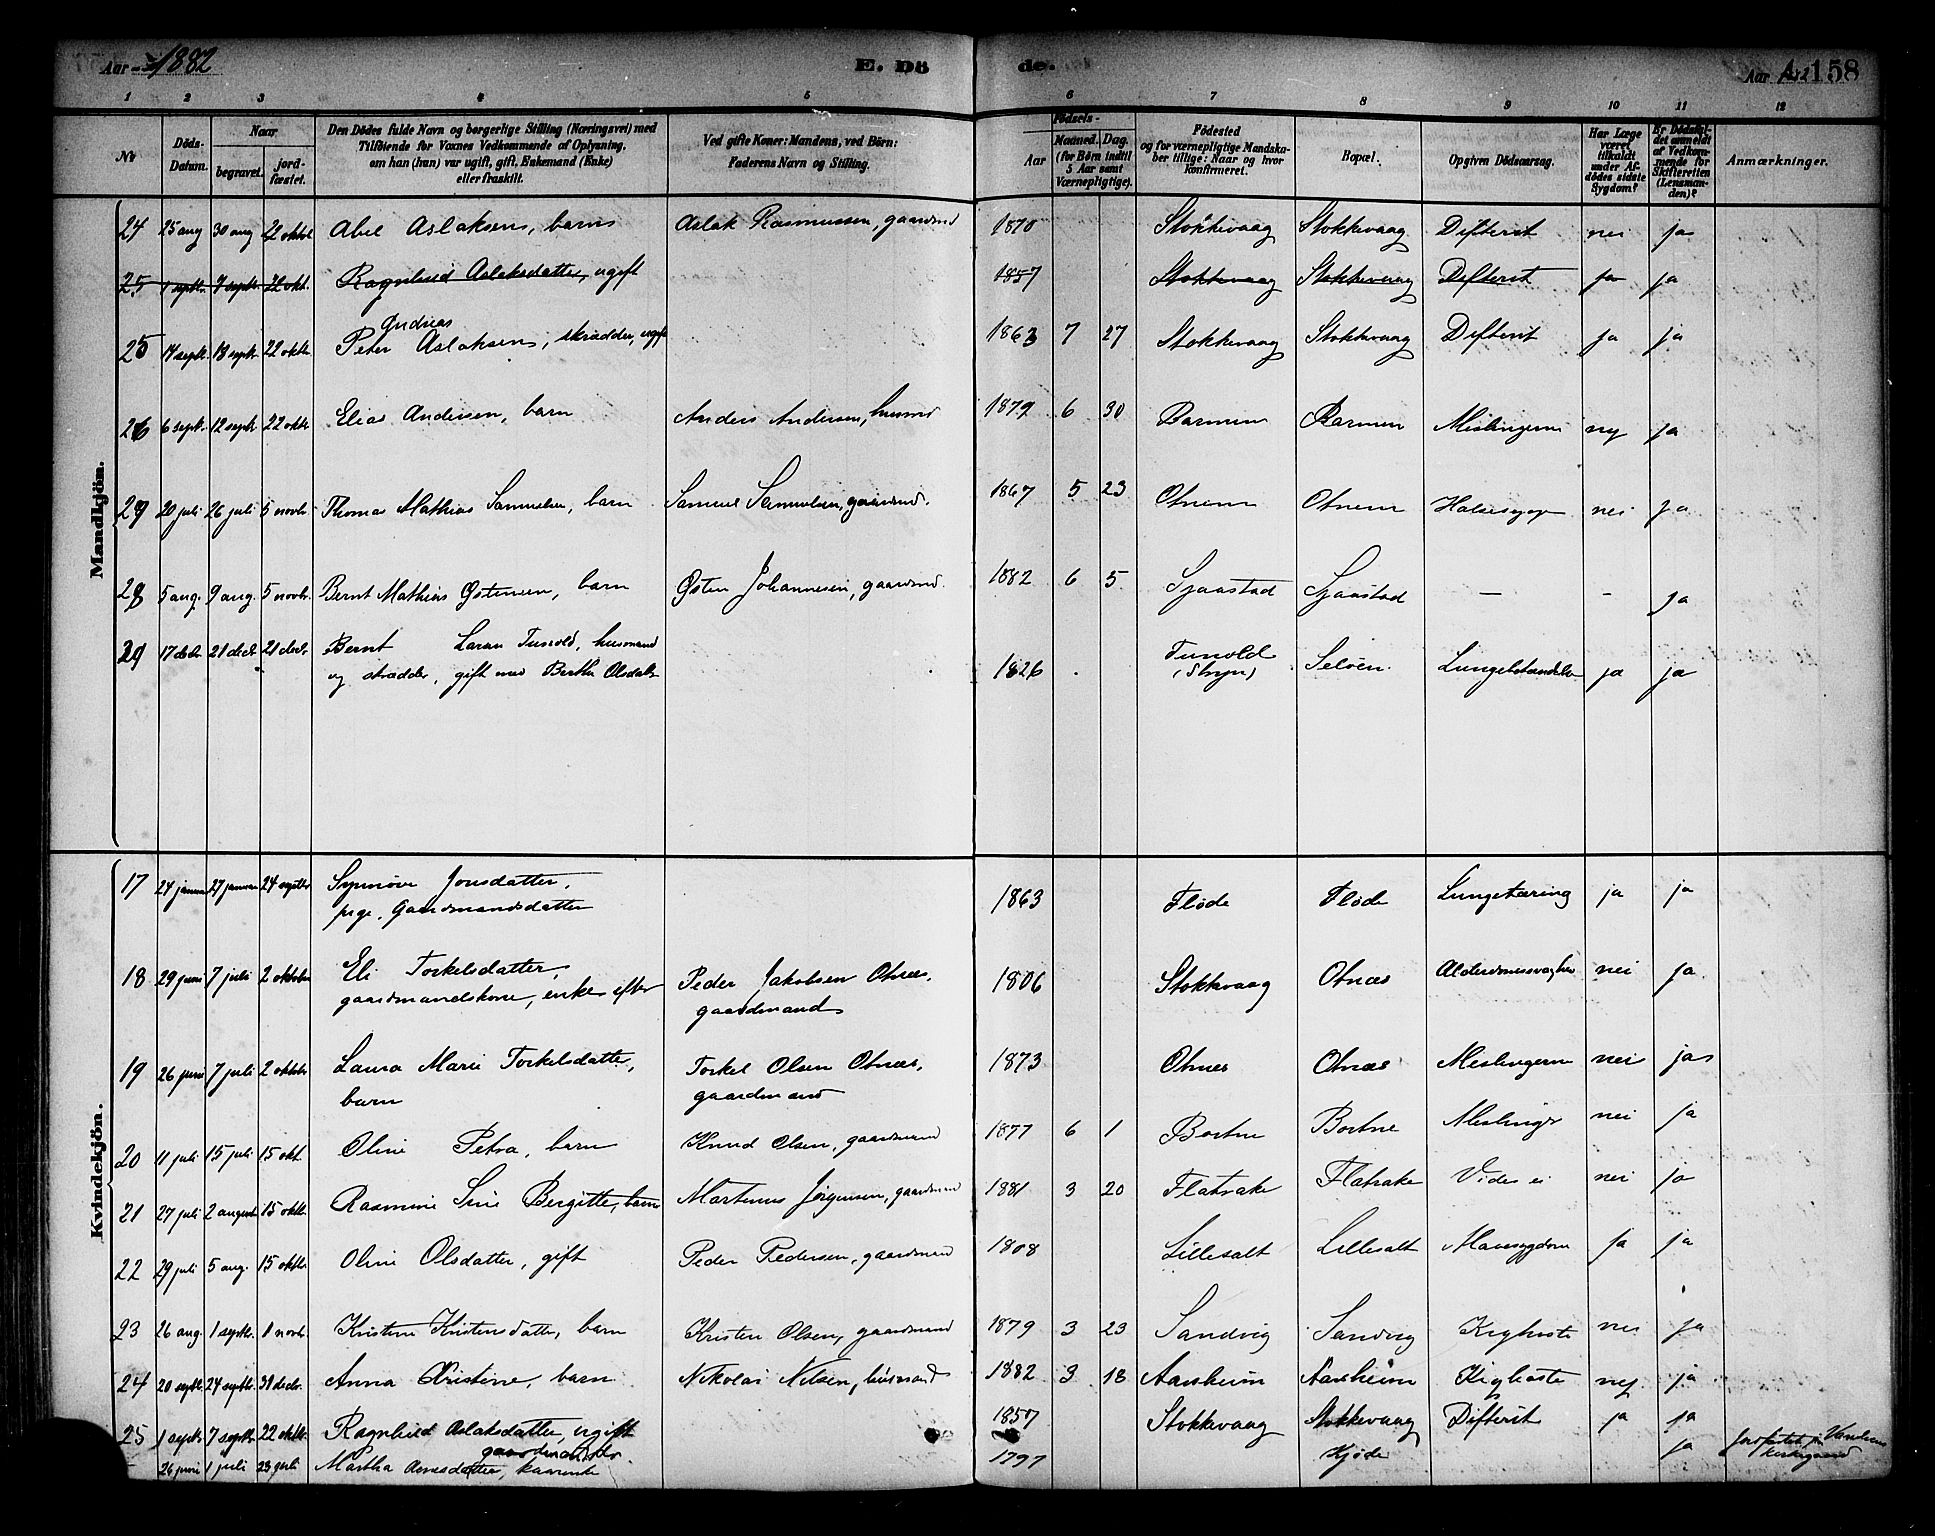 Aar 1882 E. Dö de. Aar 1882 158
1 2 3 4 5 6 7 8 9 10 11 12
No Döds-Datum. Naar begravet. jord-fæstet. Den Dödes fulde Navn og borgerlige Stilling (Næringsvei) med Tilföiende for Voxnes Vedkommende af Oplysning, om han (hun) var ugift, gift, Enkemand (Enke) eller fraskilt. Ved gifte Koner: Mandens, ved Börn: Faderens Navn og Stilling. Födsels- Aar Maaned. Dag. (for Börn indtil 5 Aar samt Værnepligtige). Födested og for værnepligtige Mandska-ber tillige: Naar og hvor konfirmeret. Bopæl. Opgiven Dödsaarsag. Har Læge været tilkaldt under Af-dödes sidste Sygdom? Er Dödsfal-det anmeldt af Vedkom-mende for Skifteretten (Lensman-den)? Anmærkninger.
Mandkjön.
24 25 aug 30 aug 22 oktbr Abel Aslaksen, barn Aslak Rasmussen, gaardmd 1870 Stokkevaag Stokkevaag Difterit nei ja
25 1 septbr. 7 septbr. 22 okt. Ragnhild Aslaksdatter, ugift 1857 Stokkevaag Stokkevaag Difterit ja ja
Andreas
25 14 septb. 18 septb. 22 oktbr. Peter Aslaksen, skrædder, ugift 1863 7 27 Stokkevaag Stokkevaag Difterit ja ja
26 6 septb. 12 septb 22 oktbr Elias Andersen, barn Anders Andersen, husmd 1879 6 30 Barmen Barmen Meslingerne nej ja
27 20 juli 26 juli 5 novbr. Thomas Mathias Samuelsen, barn Samuel Samuelsen, gaardmd. 1867 5 23 Otnem Otnem Halsesyge nei ja
28 5 aug. 9 aug. 5 novbr. Bernt Mathias Østensen, barn Østen Johannesen, gaardmd. 1882 6 5 Sjaastad Sjaastad — - ja
29 17 decbr. 21 decbr. 21 decbr. Bernt Larsen Tunold, husmand
og skrædder, gift med Berthe Olsdatter 1826 Tunold (Stryn) Seløen Lungebetændelse ja ja
Kvindekjön.
17 24 januar 27 januar 24 septbr Synnøve Jonsdatter,
pige, Gaardmandsdatter 1863 Fløde Fløde Lungetæring ja ja
18 29 juni 7 juli 2 oktober Eli Torkelsdatter,
gaardmandskone, enke efter Peder Jakobsen Otnæs,
gaardmand 1806 Stokkevaag Otnæs Alderdomssvaghed nei ja
19 26 juni 7 juli 2 oktober Laura Marie Torkelsdatter,
barn Torkel Olsen Otnæs,
gaardmand 1873 Otnæs Otnæs Meslingerne nei ja
20 11 juli 15 juli 15 okt. Oline Petra, barn Knud Olsen, gaardmand 1877 6 1 Bortne Bortne Meslinger nei ja
21 27 juli 2 august 15 oktbr Rasmine Sine Bergitte, barn Martinus Jørgensen, gaardmand 1881 3 20 Flatrake Flatrake Vides ei nei ja
22 29 juli 5 aug. 15 oktbr Oline Olsdatter, gift Peder Pedersen, gaardmand 1808 Lillesalt Lillesalt Mavesygdom ja ja
23 26 aug. 1 septbr. 1 novbr. Kristine Kristensdatter, barn Kristen Olsen, gaardmand 1879 3 23 Sandvig Sandvig Kighoste nei ja
24 20 septbr 24 septbr. 31 decbr. Anna Kristine, barn Nikolai Nilsen, husmand 1882 3 18 Aarsheim Aarsheim Kighoste nej ja
25 1 septbr 7 septbr 22 oktbr Ragnhild Aslaksdatter, ugift 1857 Stokkevaag Stokkevaag Difterit ja ja
gaardmandsdtr.
26 juni 1 juli 23 juli Martha Arnesdatter, kaarenke 1797 Hjøde ja Jordfæstet på kirkegaard